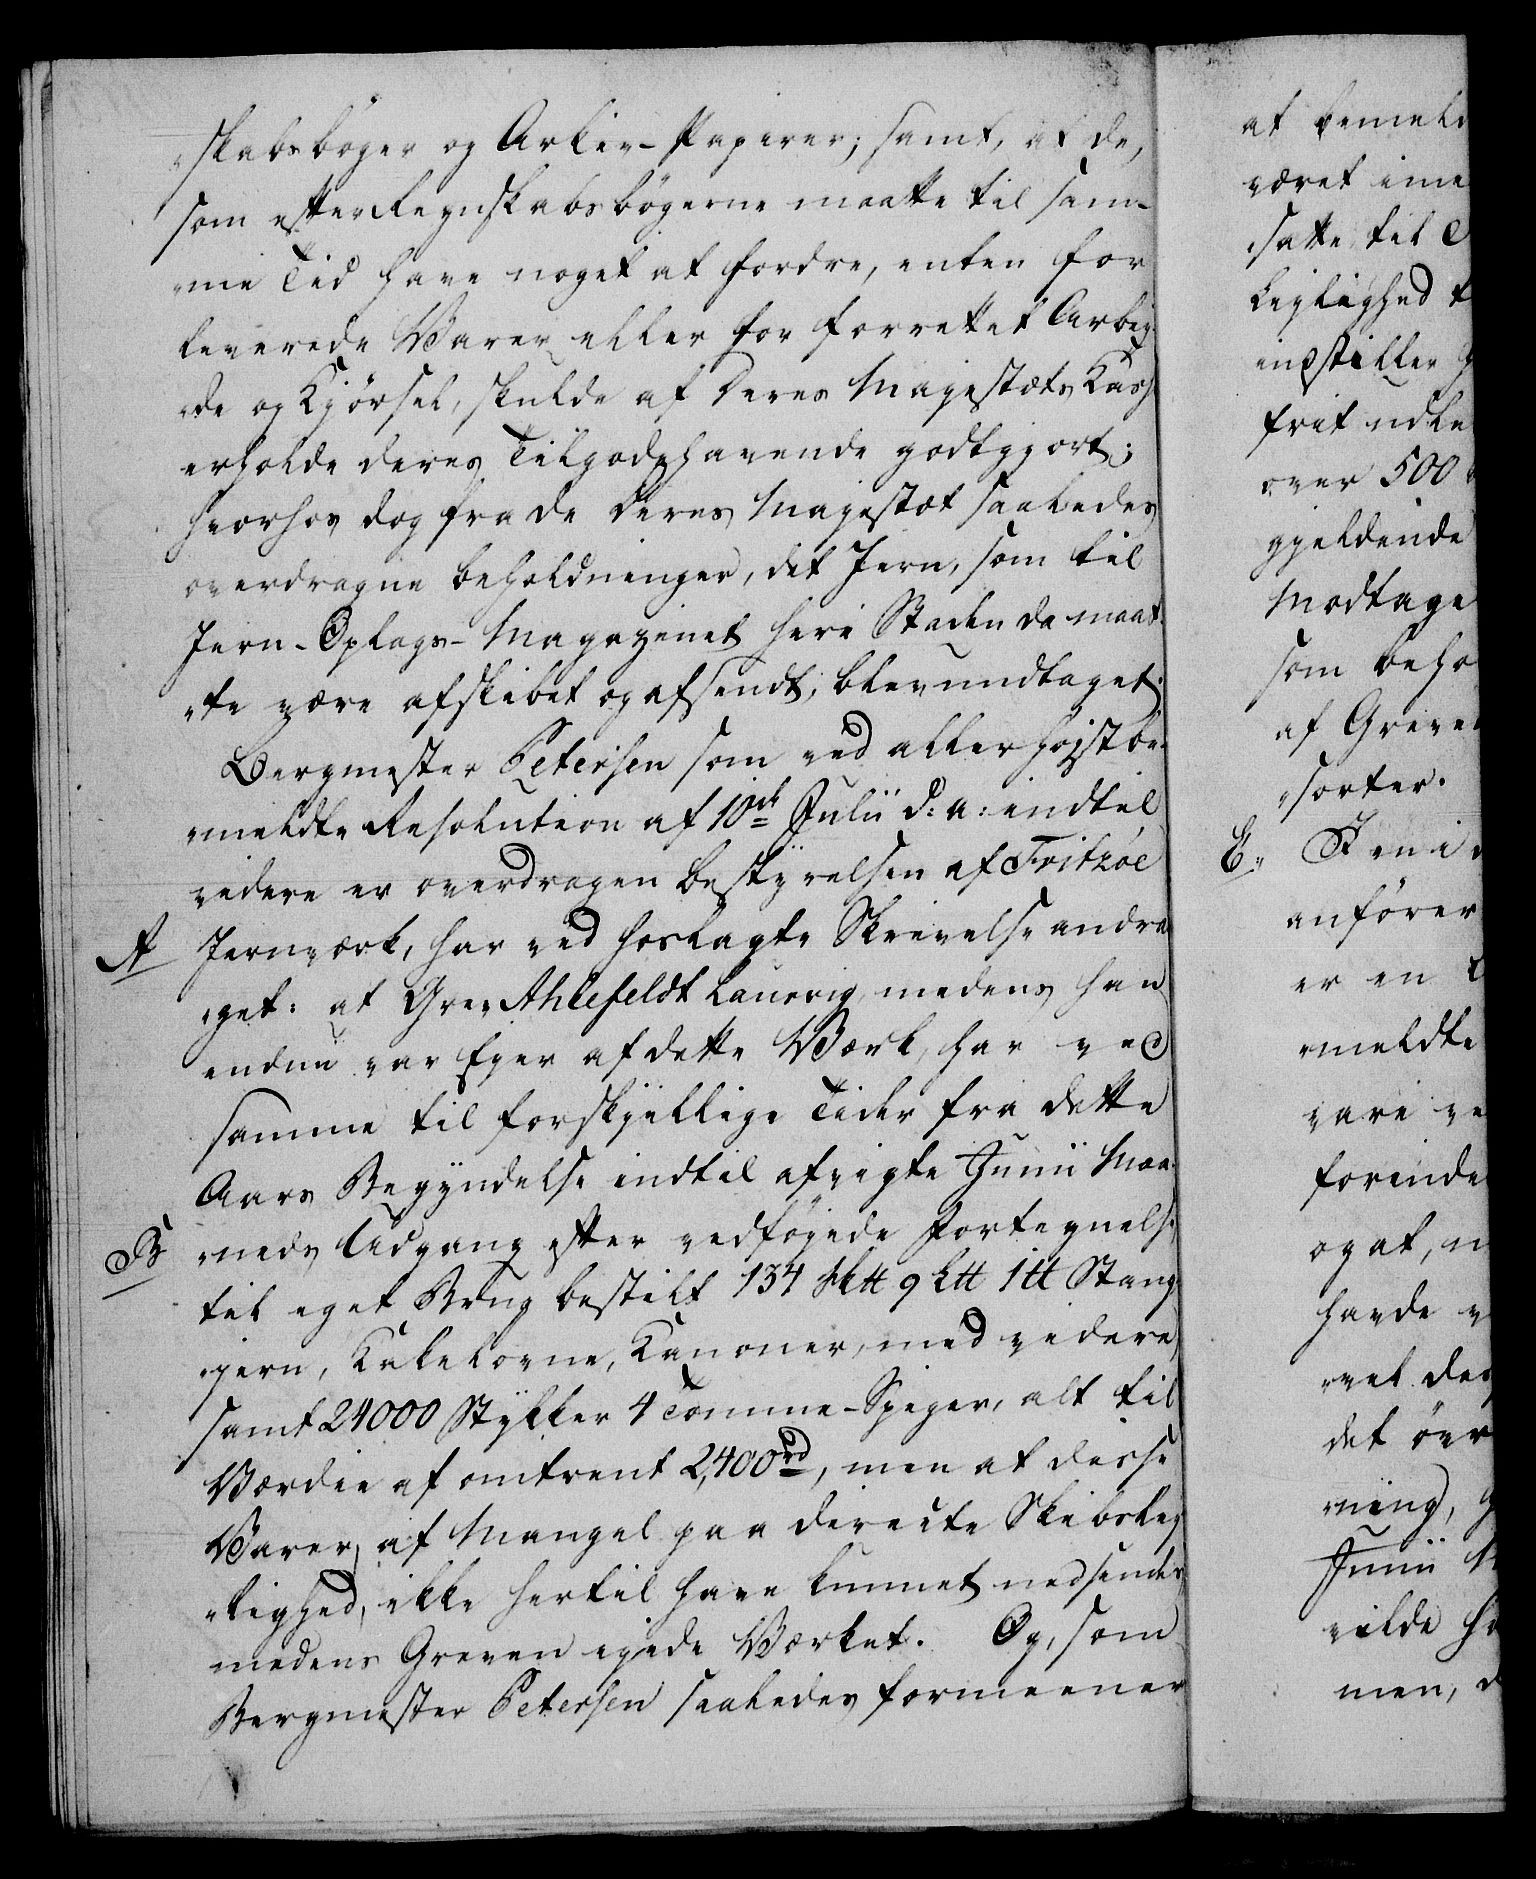 „skabsbøger og Arkiv-Papirer; samt, at de,
som efter Regnskabsbøgerne maatte til sam-
„me Tid have noget at fordre, enten for
leverede Varer eller for forrettet Arbey-
„de og Kjørsel, skulde af Deres Majestæts Kasse
erholde deres Tilgodehavende godtgjort;
hvorhos dog fra de Deres Majestæt saaledes
overdragne beholdninger, det Jern, som til
Jern-Oplags-Magazinet her i Staden da maat-
„te være afskibet og afsendt, blev undtaget.
Bergmester Petersen som ved allerhøjstbe-
„meldte Resolution af 10de Julii d: a: indtil
videre er overdragen bestyrelsen af Fritzöe
A
Jernværk, har ved hoslagte Skrivelse andra-
„get: at Grev Ahlefeldt Laurvig, medens han
endnu var Ejer af dette Værk, har ved
samme til forskjellige Tider fra dette
Aars Begyndelse indtil afvigte Junii Maa-
B
„neds Udgang efter vedføjede Fortegnelse
til eget Brug bestilt 134 Sktt 9 Ltt 1 tt Stang-
„jern, Kakelovne, Kanoner, med videre,
samt 24000 Stykker 4 Tomme-Spiger, alt til
Værdie af omtrent 2,400rd, men at disse
Varer, af Mangel paa directe Skibslej-
„lighed, ikke hertil have kunnet nedsendes
medens Greven ejede Værket. Og, som
Bergmester Petersen saaledes formeener
at bemeld
været ime
satte til
lejlighed
indstiller
frit udle
over 500
gjeldende
Modtage
som beho
af Greve
„sorter.
E„
anfører
er en
„meldte
vare ve
forinde
og at,
havde
„vet des
det øvr
„ning,
Junii
vilde
men,